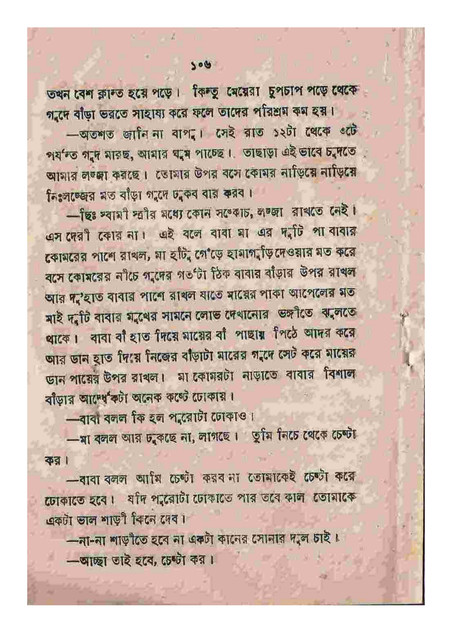 ১০৬
তখন বেশ ক্লান্ত হয়ে পড়ে। কিন্তু মেয়েরা চুপচাপ পড়ে থেকে
গুদে বাঁড়া ভরতে সাহায্য করে ফলে তাদের পরিশ্রম কম হয়।
—অতশত জানি না বাপু। সেই রাত ১২টা থেকে ৩টে
পর্যন্ত গুদ মারছ, আমার ঘুম পাচ্ছে। তাছাড়া এই ভাবে চুদতে
আমার লজ্জা করছে। তোমার উপর বসে কোমর নাড়িয়ে নাড়িয়ে
নিঃলজ্জের মত বাঁড়া গুদে ঢুকব বার করব।
—ছিঃ স্বামী স্ত্রীর মধ্যে কোন সঙ্কোচ, লজ্জা রাখতে নেই।
এস দেরী কোর না। এই বলে বাবা মা এর দুটি পা বাবার
কোমরের পাশে রাখল, মা হাঁটু গেঁড়ে হামাগুড়ি দেওয়ার মত করে
বসে কোমরের নীচে গুদের গর্তটা ঠিক বাবার বাঁড়ার উপর রাখল
আর দু'হাত বাবার পাশে রাখল যাতে মায়ের পাকা আপেলের মত
মাই দুটি বাবার মুখের সামনে লোভ দেখানোর ভঙ্গীতে ঝুলতে
থাকে। বাবা বাঁ হাত দিয়ে মায়ের বাঁ পাছায় পিঠে আদর করে
আর ডান হাত দিয়ে নিজের বাঁড়াটা মারের গুদে সেট করে মায়ের
ডান পায়ের উপর রাখল। মা কোমরটা নাড়াতে বাবার বিশাল
বাঁড়ার আর্দ্ধেকটা অনেক কষ্টে ঢোকায়।
—বাবা বলল কি হল পুরোটা ঢোকাও।
—মা বলল আর ঢুকছে না, লাগছে। তুমি নিচে থেকে চেষ্টা
কর।
—বাবা বলল আমি চেষ্টা করব না তোমাকেই চেষ্টা করে
ঢোকাতে হবে। যদি পুরোটা ঢোকাতে পার তবে কাল তোমাকে
একটা ভাল শাড়ী কিনে দেব।
—না-না শাড়ীতে হবে না একটা কানের সোনার দুল চাই।
—আচ্ছা তাই হবে, চেষ্টা কর।